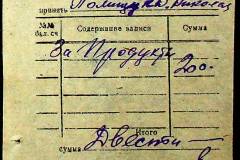 принять Полищук Николай
№№ бал. сч Содержание записи Сумма
За Продукты 200-
Итого
сумма Двести